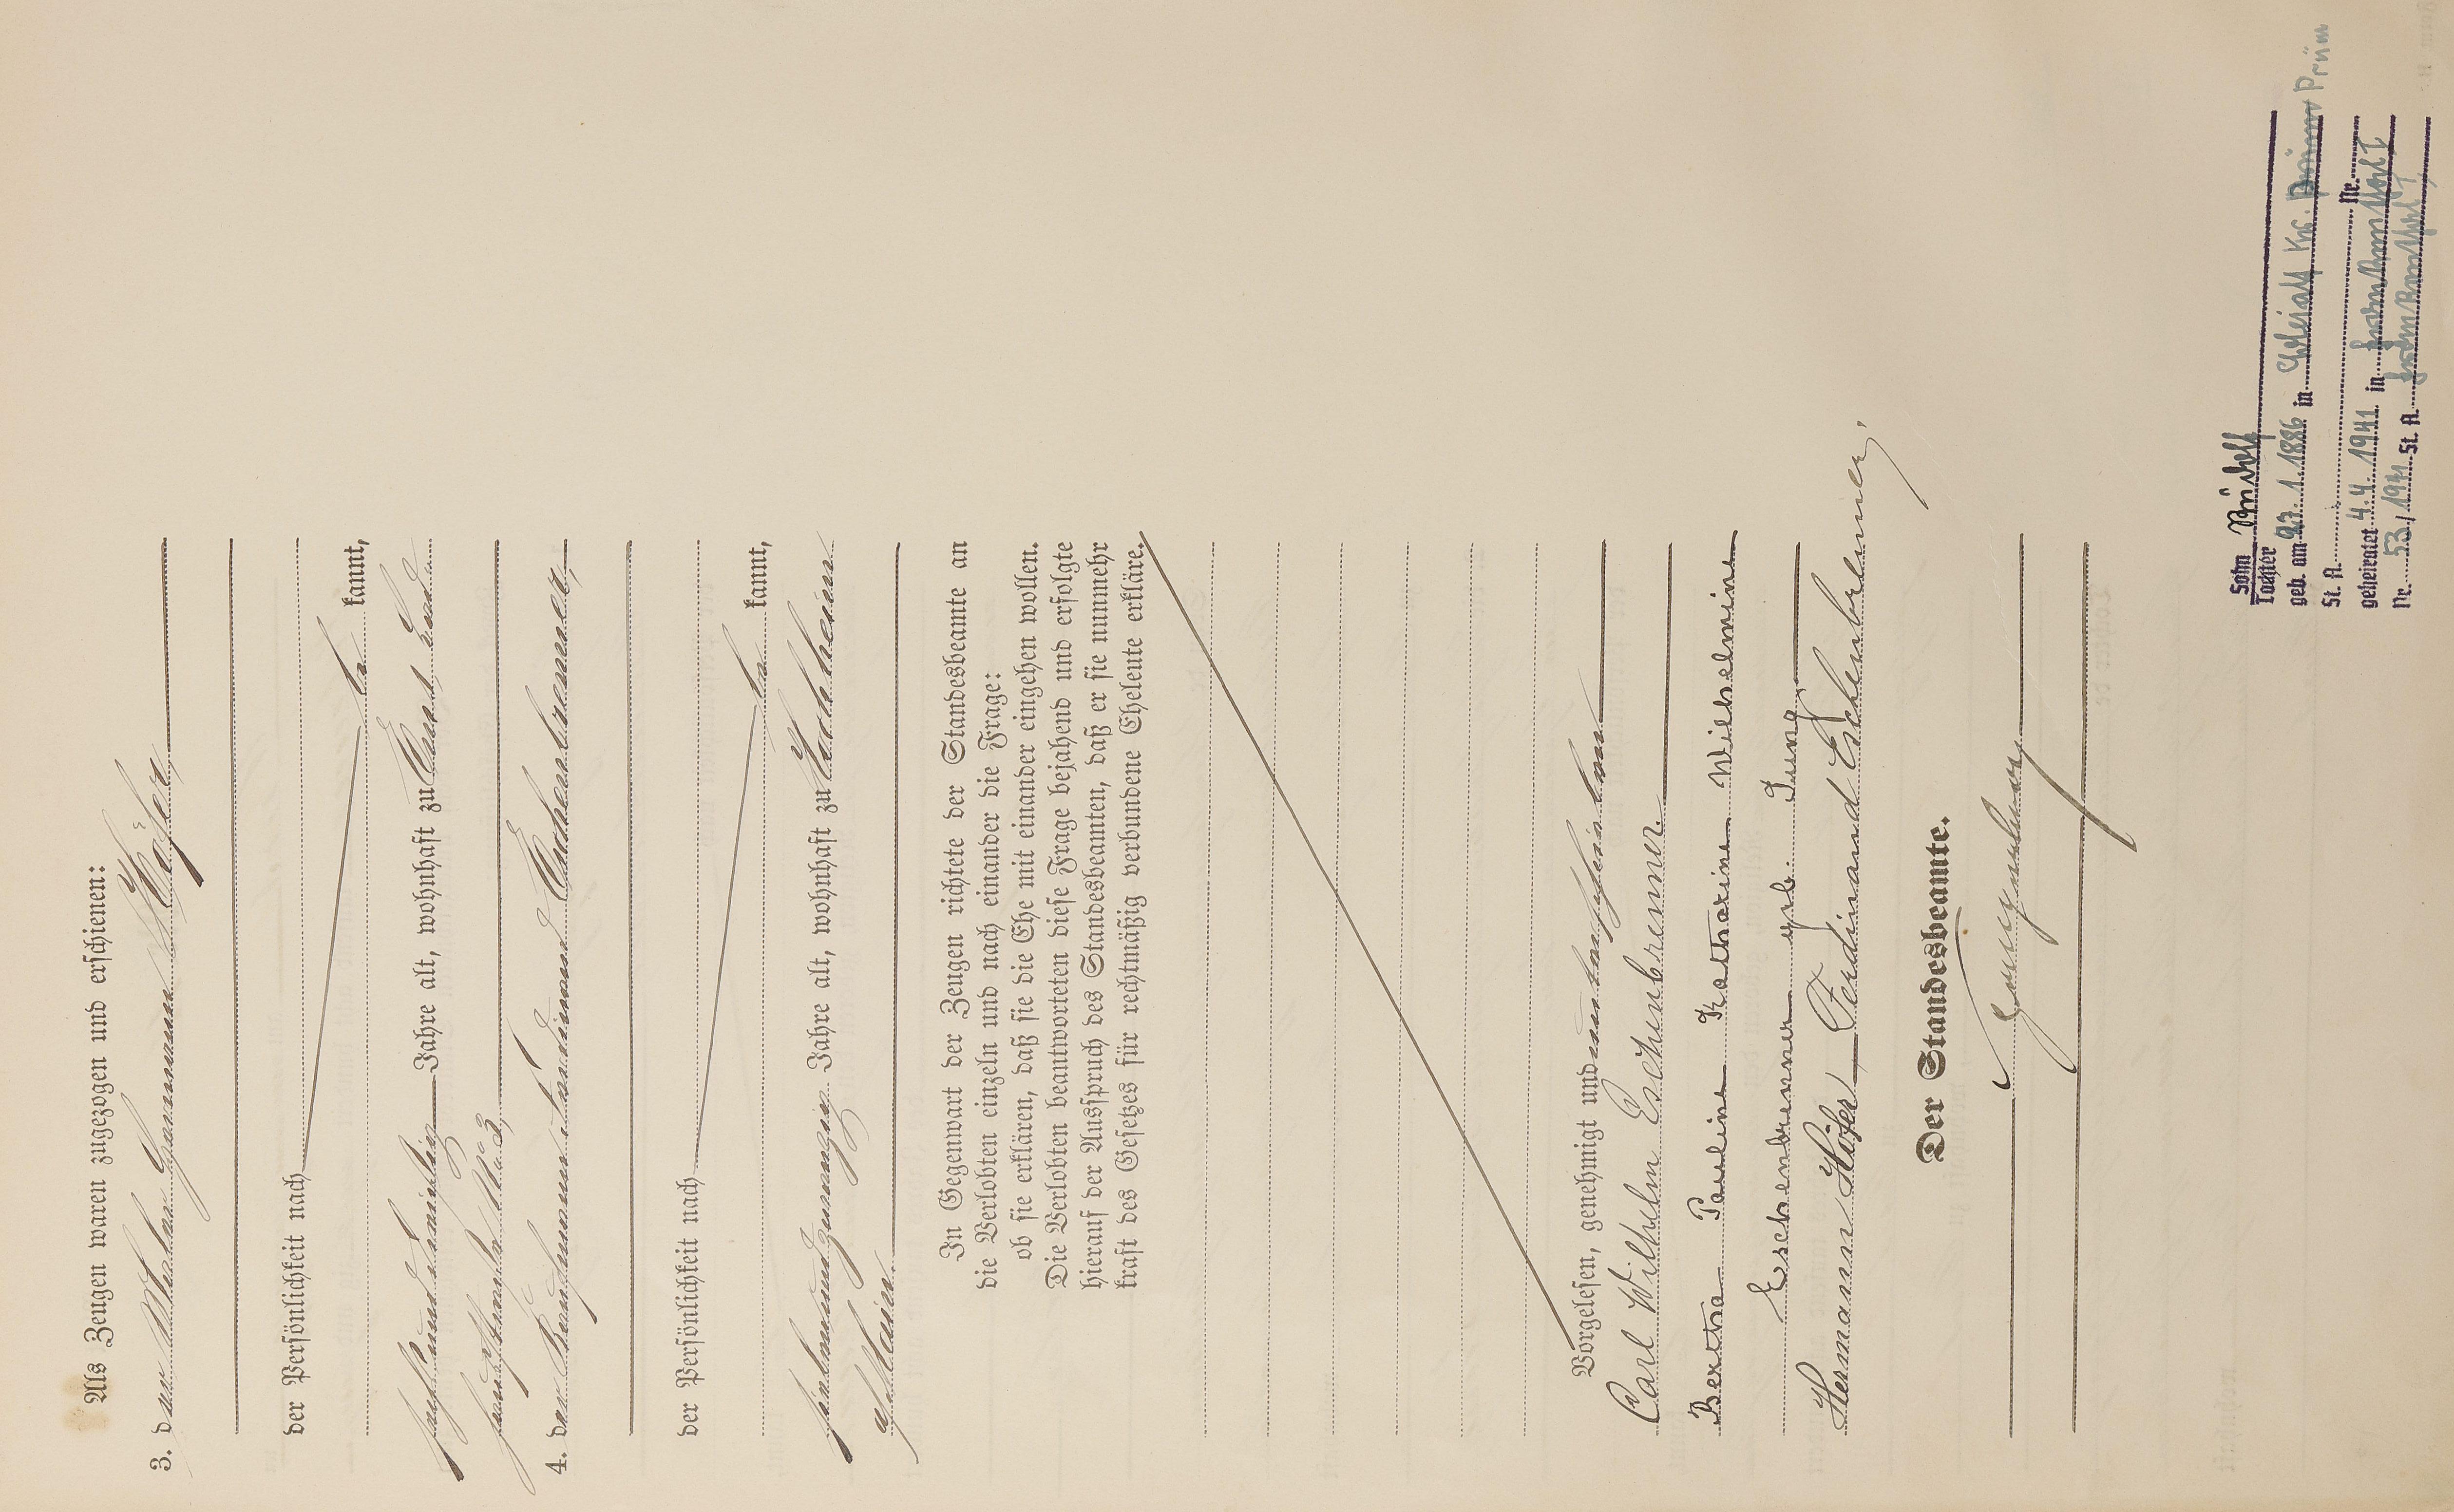 Als Zeugen waren zugezogen und erschienen:
3. der Maler Hermann Höfer
der Persönlichkeit nach
be kannt,
sechsunddreißig Jahre alt, wohnhaft zu
No 3,
4. der Ferdinand Eschenbrenner,
der Persönlichkeit nach
be kannt,
siebenundzwanzig Jahre alt, wohnhaft zu
a/Main.
In Gegenwart der Zeugen richtete der Standesbeamte an
die Verlobten einzeln und nach einander die Frage:
ob sie erklären, daß sie die Ehe mit einander eingehen wollen.
Die Verlobten beantworteten diese Frage bejahend und erfolgte
hierauf der Ausspruch des Standesbeamten, daß er sie nunmehr
kraft des Gesetzes für rechtmäßig verbundene Eheleute erkläre.
Vorgelesen, genehmigt und unterschrieben
Carl Wilhelm Eschenbrenner.
Bertha Pauline Katharine Wilhelmine
Eschenbrenner geb. Jung,
Hermann Höfer Ferdinand Eschenbrenner,
Der Standesbeamte.
Sohn Rudolf
Tochter
geb. am 27.1.1886 in Krs. Prüm
St. A. Nr.
geheiratet 4.4.1941 in
Nr. 53/1941 St. A.